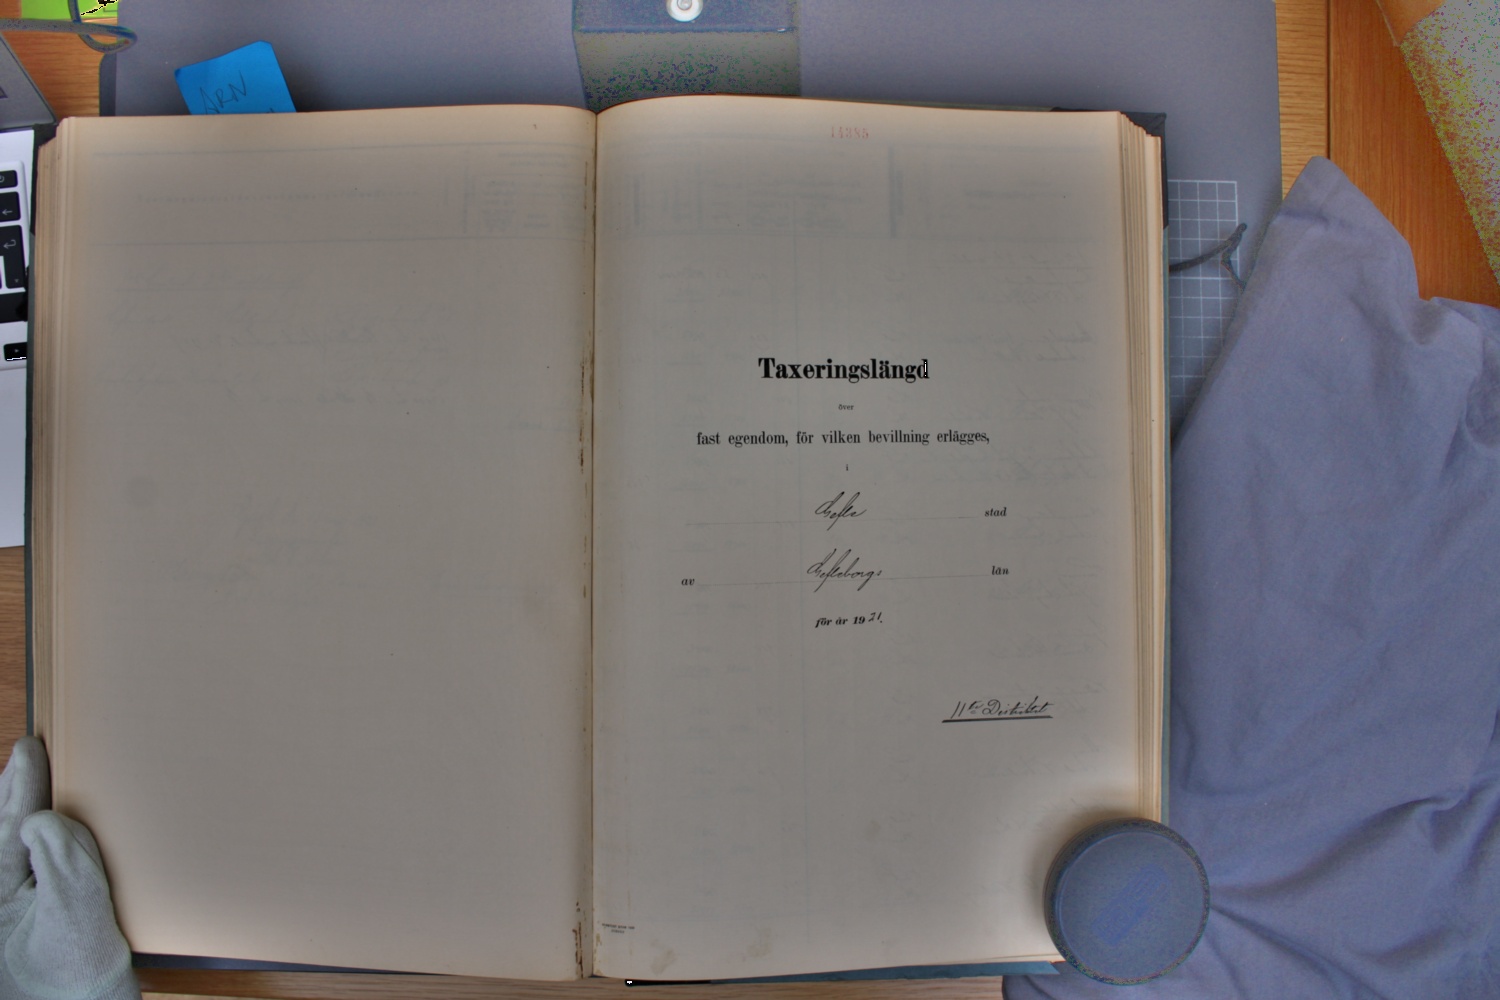 ARN
14385
Taxeringslängd
över
fast egendom, för vilken bevillning erlägges,
i
Gefle stad
av Gefleborgs län
för år 1921.
11te Distriktet